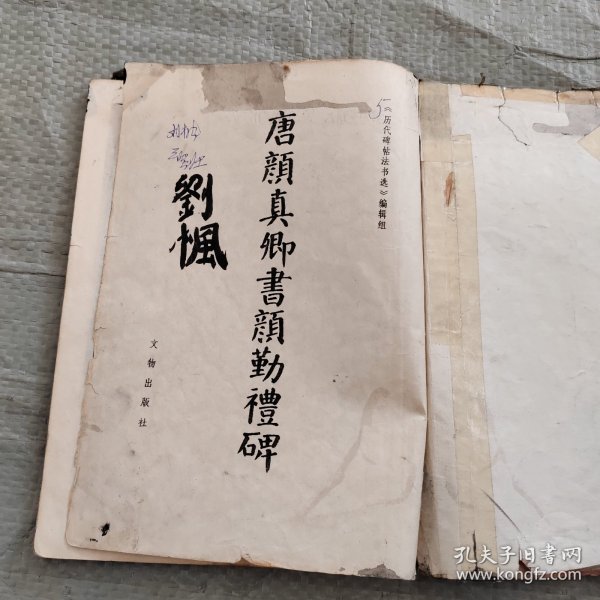 《历代碑帖法书选》编辑组
唐顔真卿書顔勤禮碑
劉楓
文物出版社
孔夫子旧书网
www.kongfz.com